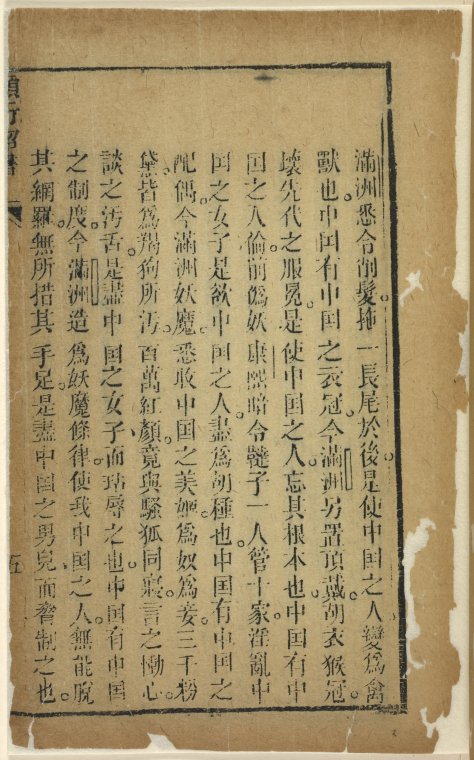 滿洲悉令削髮拖一長尾於後。是使中囯之人變爲禽
獸也。中囯有中囯之衣冠。今滿洲另置頂戴。胡衣猴冠。
壞先代之服冕。是使中囯之人。忘其根本也。中囯有中
囯之人倫。前僞妖康熙。暗令韃子一人管十家。淫亂中
囯之女子。是欲中囯之人。盡爲胡種也。中囯有中囯之
配偶。今滿洲妖魔。悉收中囯之美姬。爲奴爲妾。三千粉
黛。皆爲羯狗所汚。百萬紅顏。竟與騷狐同寢。言之慟心。
談之汚舌。是盡中囯之女子而玷辱之也。中囯有中囯
之制度。今滿洲造爲妖魔條律。使我中囯之人。無能脫
其網羅。無所措其手足。是盡中囯之男兒而脅制之也。
頒行詔書
五